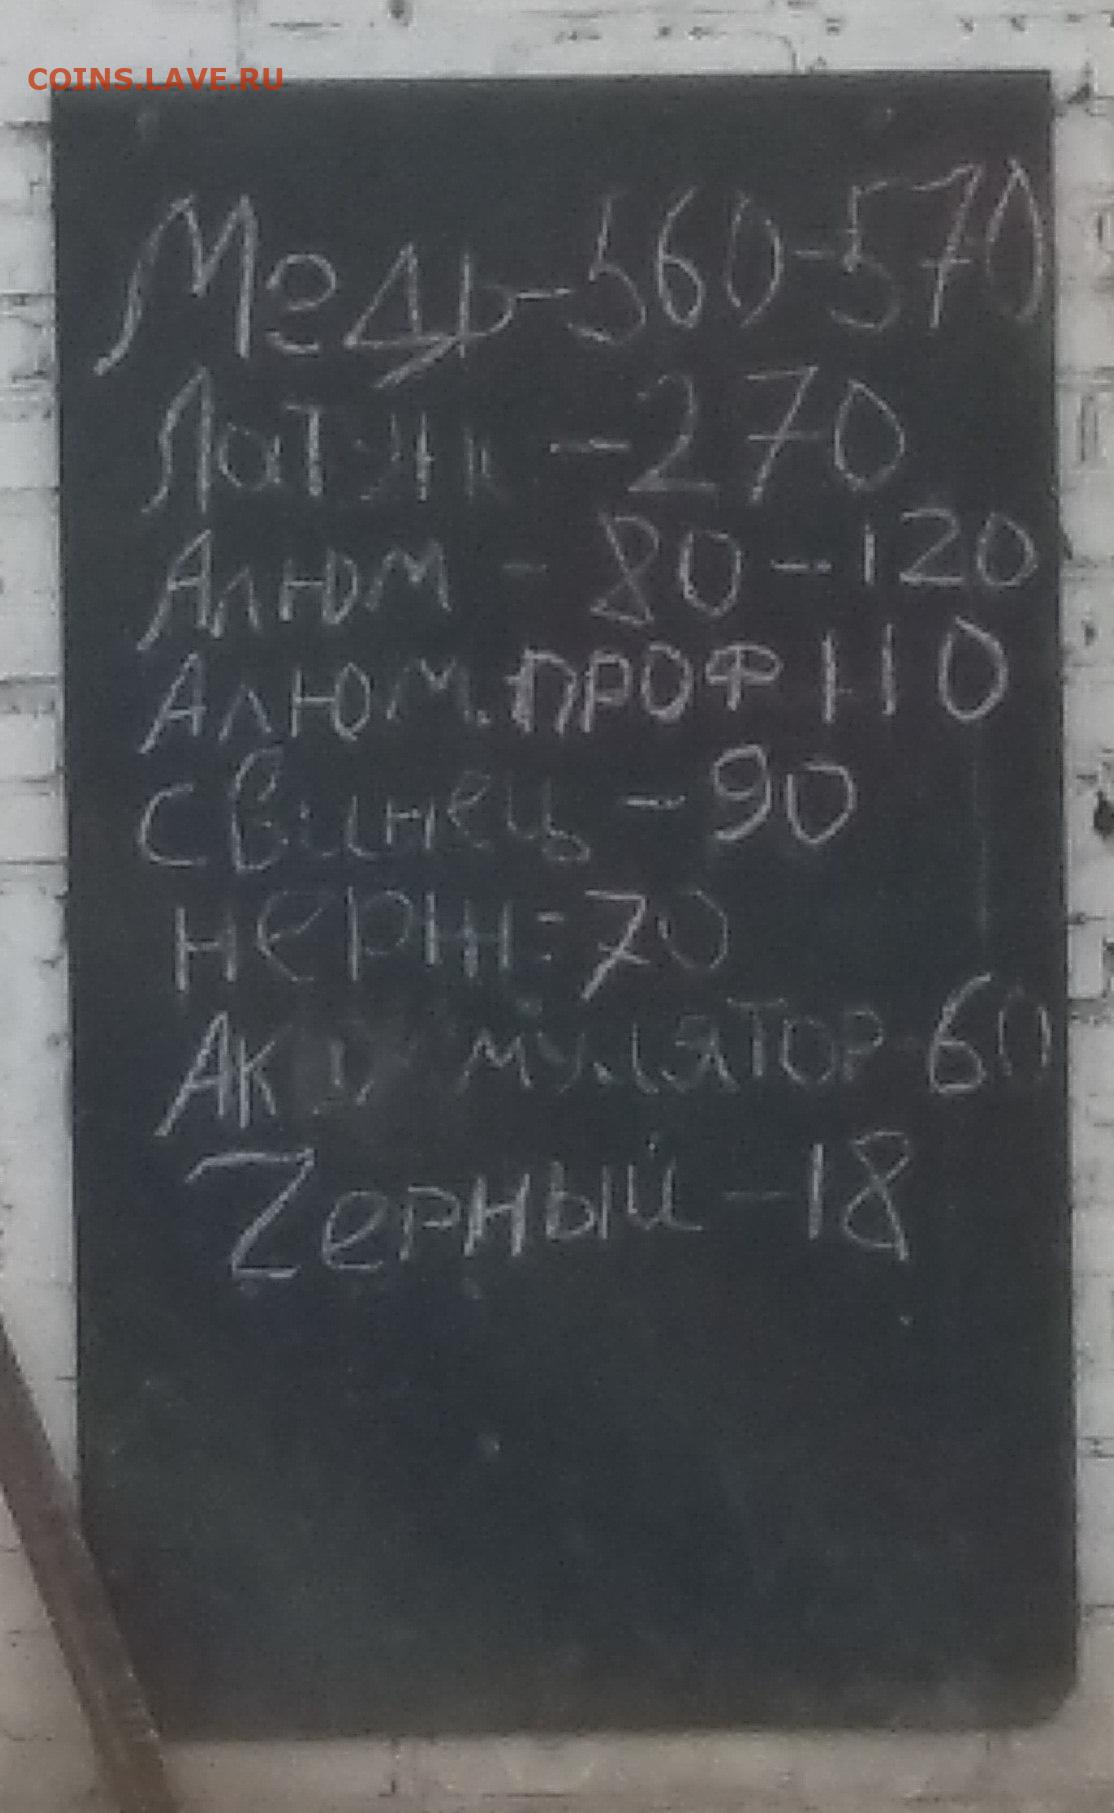 COINS.LAVE.RU
Медь-560-570
Латунь -270
Алюм - 80-120
Алюм. ПРОФ 110
свинец - 90
нерж=70
Акумулятор-60
Черный -18